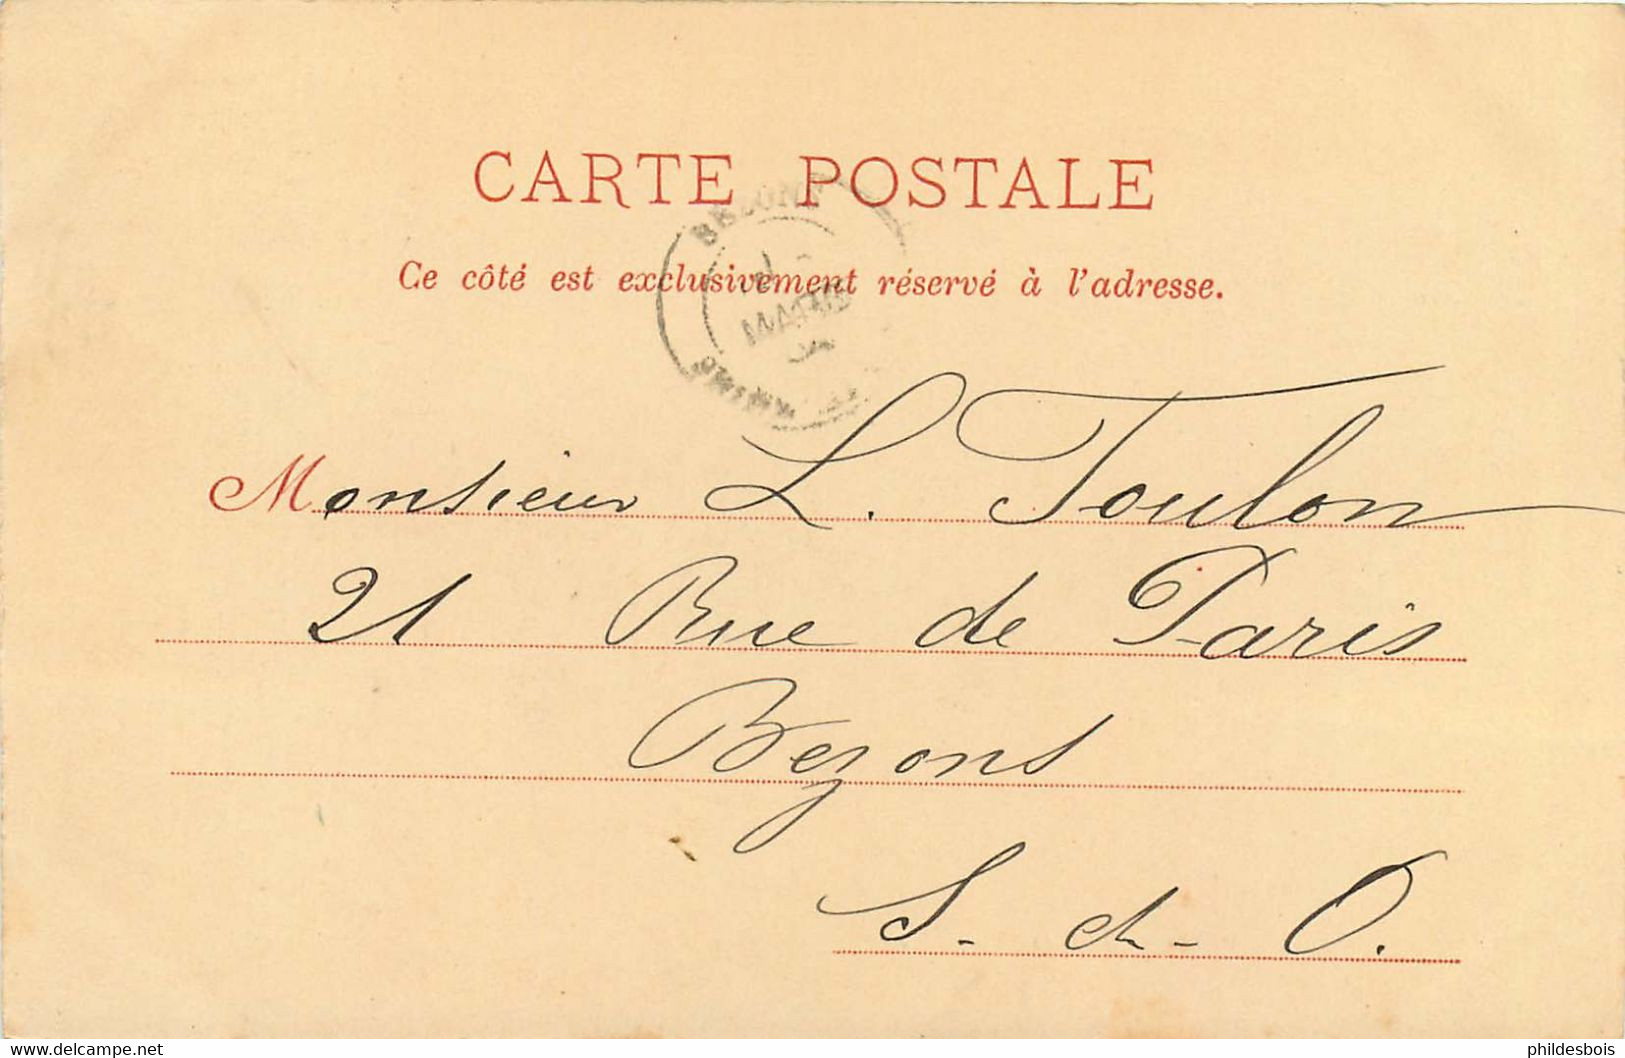 CARTE POSTALE
Ce côté est exclusivement réservé à l'adresse.
MARS
Monsieur L. Toulon
21 Rue de Paris
Bezons
S. et. O.
phildesbois